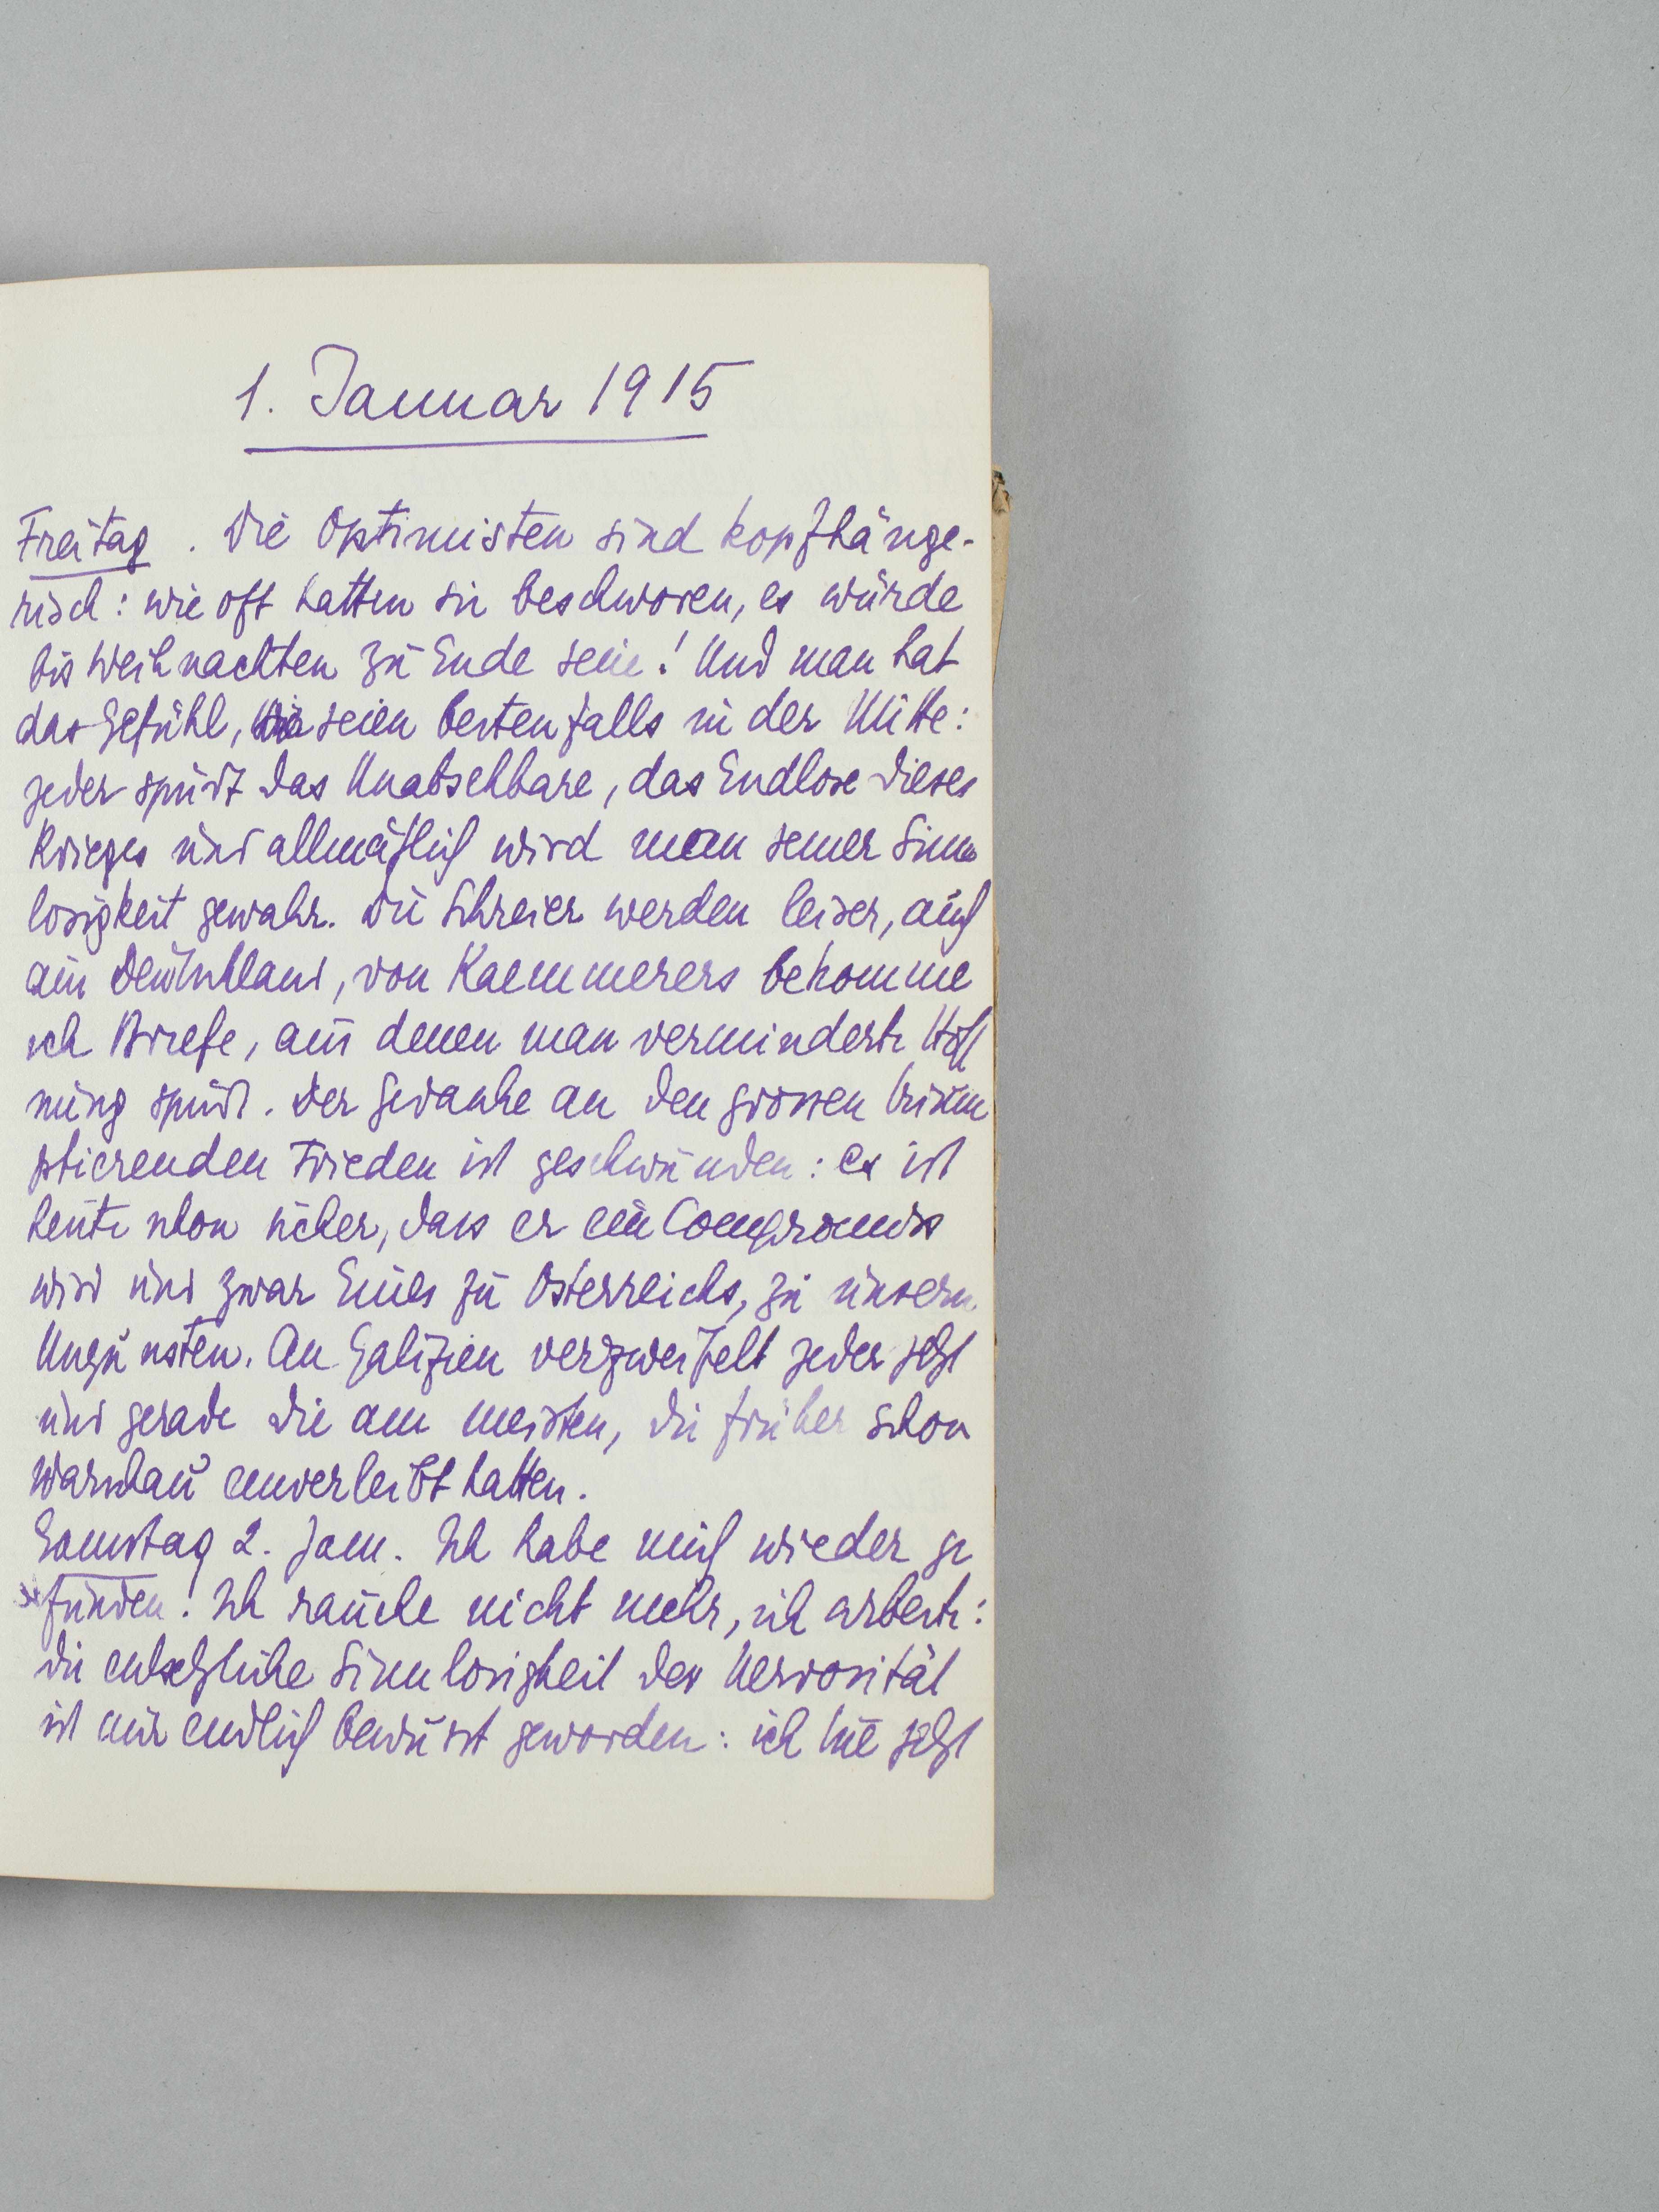 1. Januar 1915
Freitag . Die Optimisten sind kopfhänge-
risch: wie oft hatten sie beschworen, es würde
bis Weihnachten zu Ende sein! Und man hat
das Gefühl, wir seien bestenfalls in der Mitte:
jeder spürt das Unabsehbare, das Endlose dieses
Krieges und allmählich wird man seiner Sinn
losigkeit gewahr. Die Schreier werden leiser, auch
aus Deutschland, von Kaemmerers bekomme
ich Briefe, aus denen man verminderte Hoff
nung spürt. Der Gedanke an den grossen trium
phierenden Frieden ist geschwunden: es ist
heute schon sicher, dass er ein Compromiss
wird und zwar Eines zu Österreichs, zu unsern
Ungunsten. An Galizien verzweifelt jeder jetzt
und gerade die am meisten, die früher schon
Warschau einverleibt hatten.
Samstag 2. Jan. Ich habe mich wieder ge
funden! Ich rauche nicht mehr, ich arbeite:
die entsetzliche Sinnlosigkeit der Nervosität
ist mir endlich bewusst geworden: ich tue jetzt